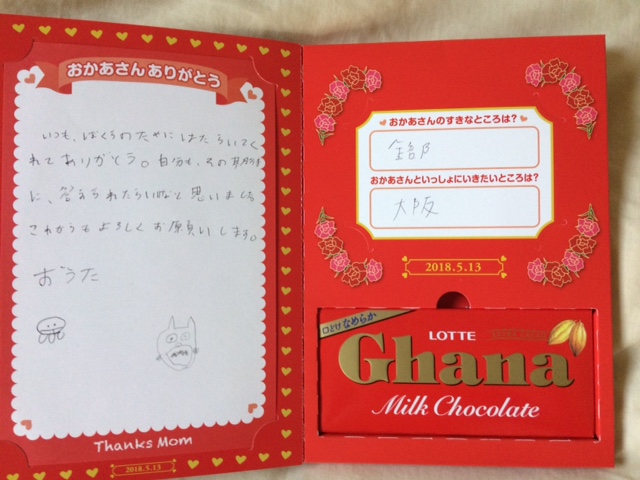 おかあさんありがとう
いつも、ぼくらのためにはたらいてく
れてありがとう。自分も、その期待
に、答えられたらいいなと思いました。
これからもよろしくお願いします。
おうた
Thanks Mom
2018.5.13
おかあさんのすきなところは?
おかあさんといっしょにいきたいところは?
大阪
2018.5.13
口どけなめらか
LOTTE
Ghana
Milk Chocolate